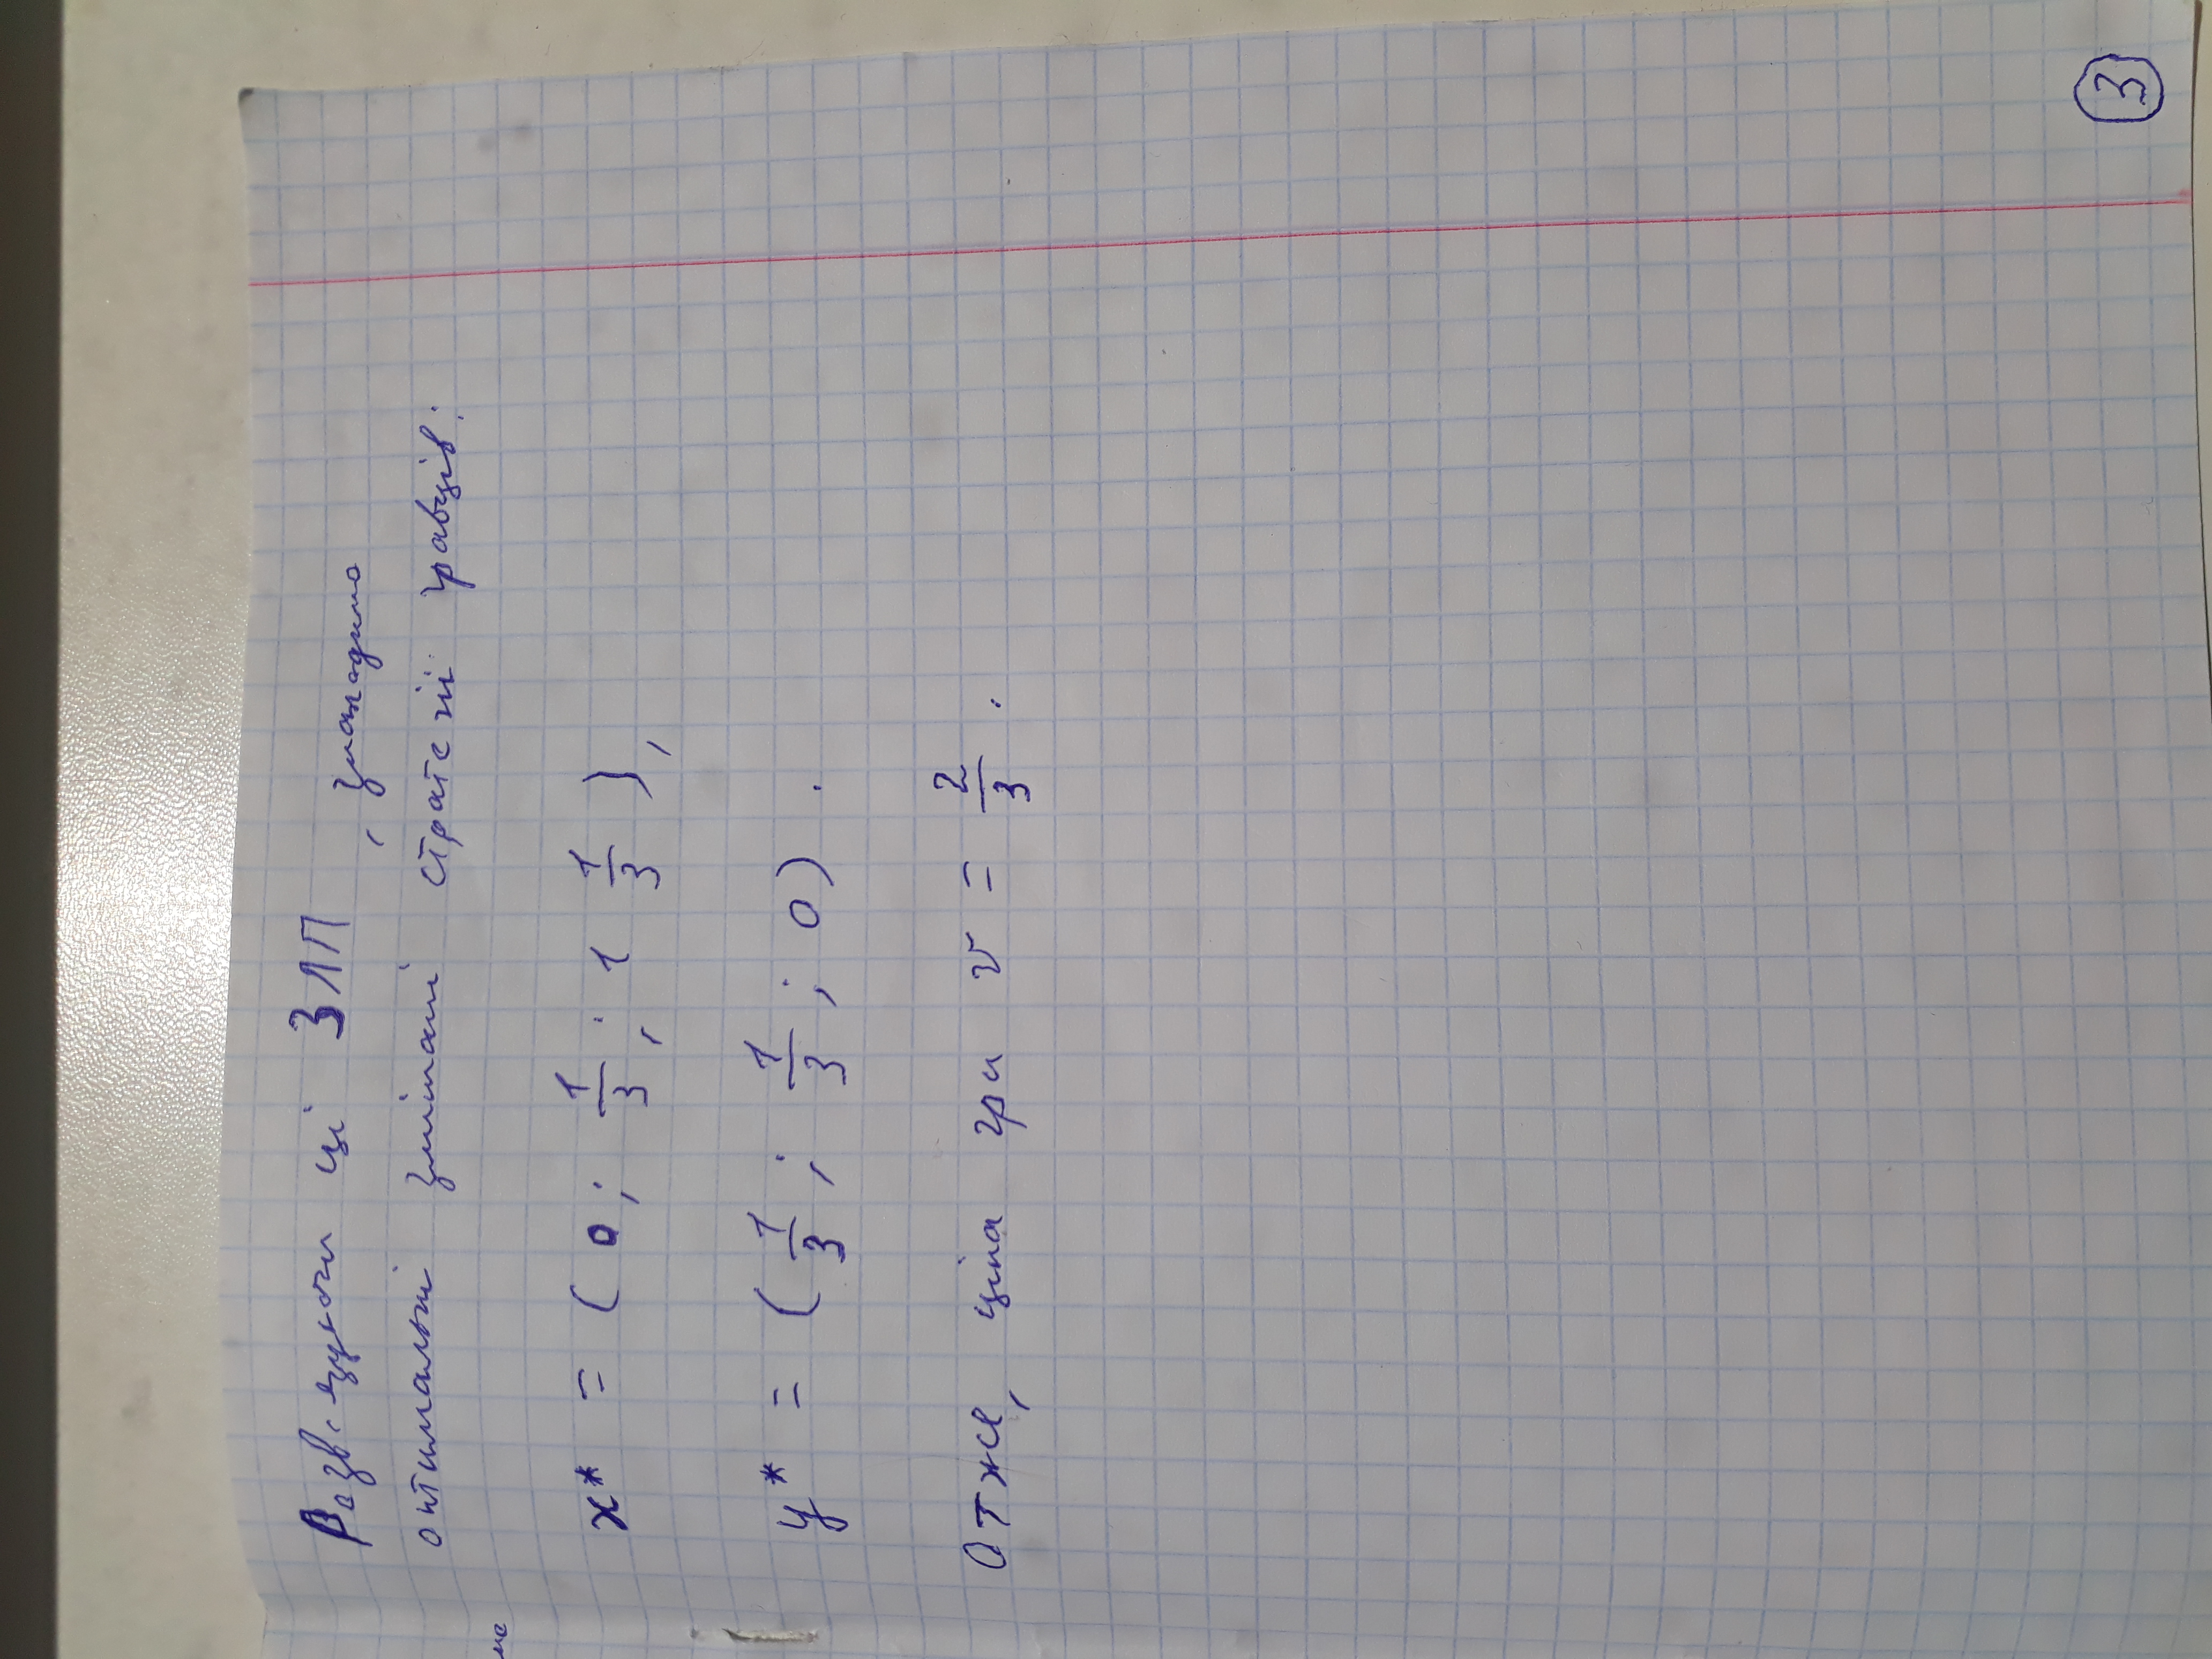 Розв'язуючи ці ЗЛП, знаходимо
оптимальні змішані стратегії гравців:
x* = (0; 1/3; 1 1/3),
y* = (1/3; 1/3; 0).
Отже, ціна гри v = 2/3.
3